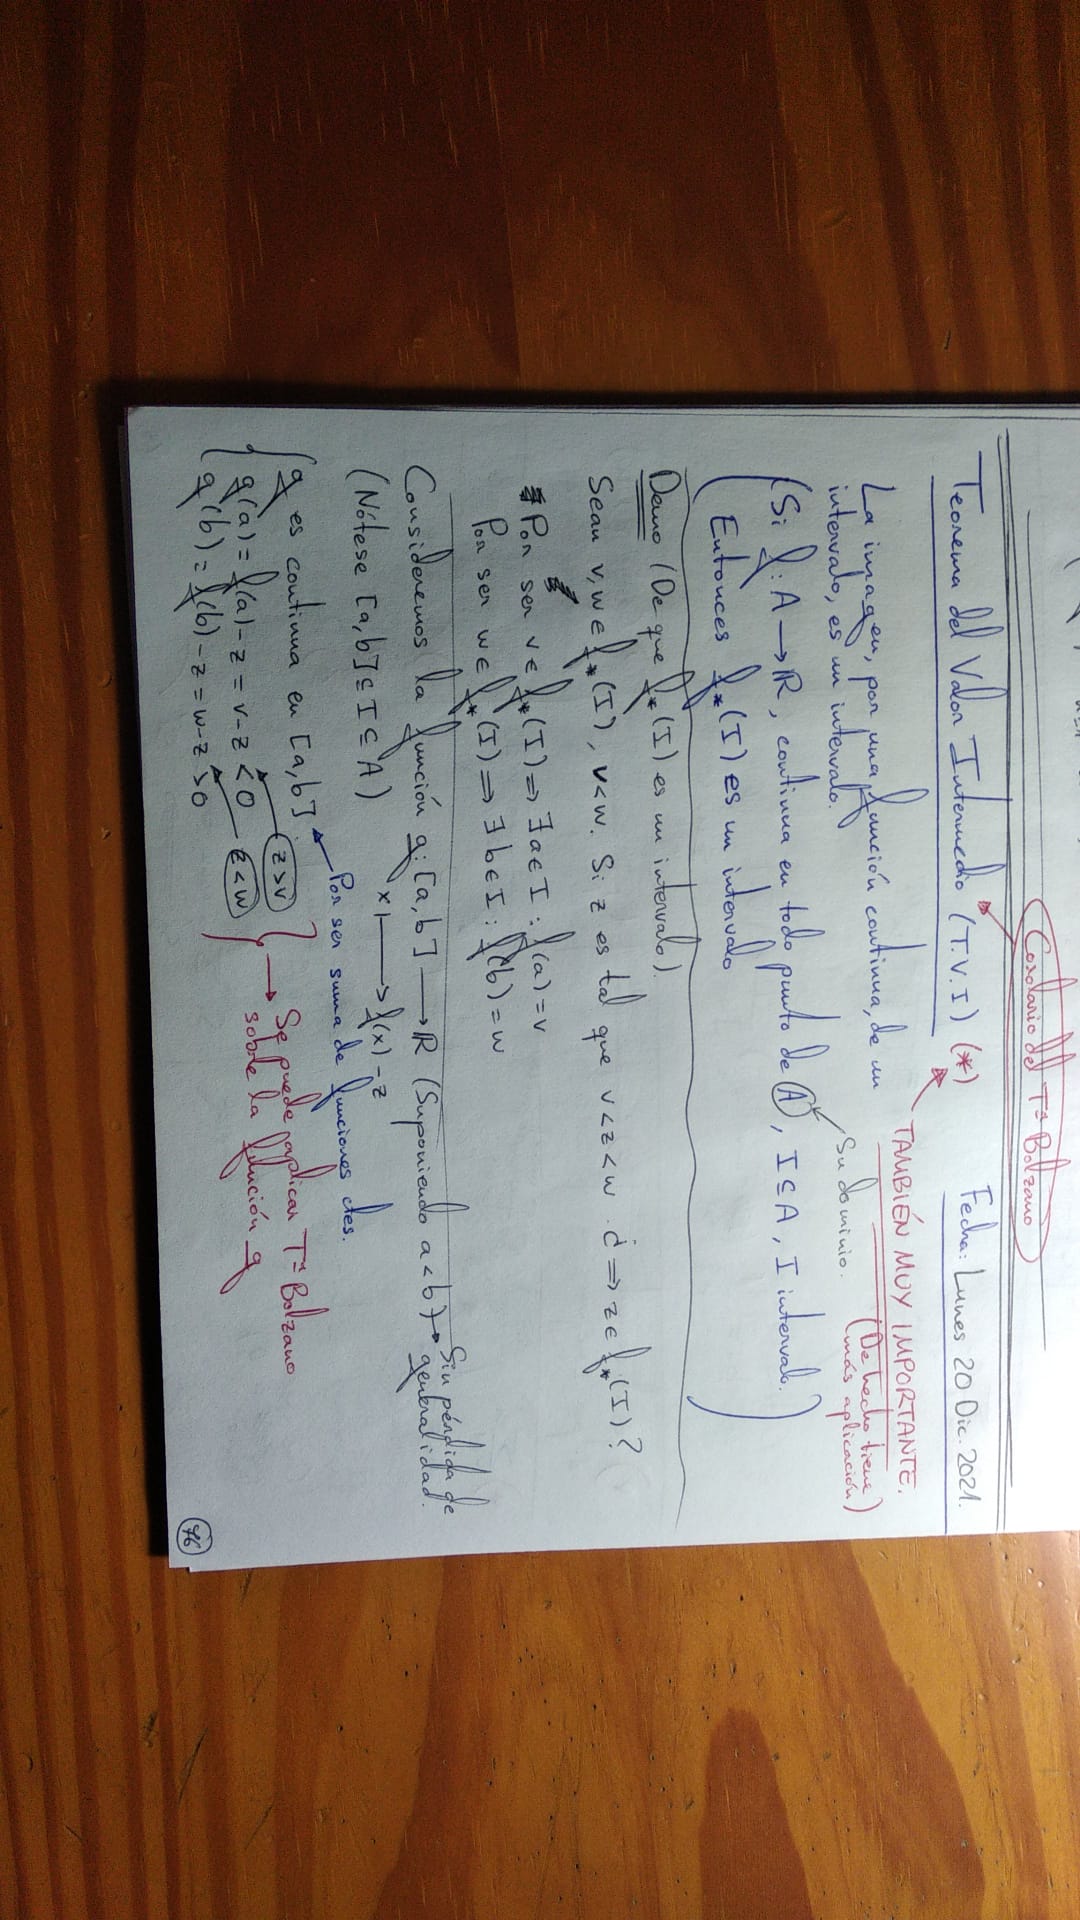 Corolario del Tª Bolzano
Teorema del Valor Intermedio (T.V.I) (*) Fecha: Lunes 20 Dic. 2021.
TAMBIÉN MUY IMPORTANTE.
(De hecho tiene
más aplicación)
La imagen, por una función continua, de un
intervalo, es un intervalo.
Su dominio.
(Si f: A → ℝ, continua en todo punto de A, I ⊆ A, I intervalo.
Entonces f*(I) es un intervalo)
Demo (De que f*(I) es un intervalo).
Sean v, w ∈ f*(I), v < w. Si z es tal que v < z < w. ¿ ⇒ z ∈ f*(I)?
Por ser v ∈ f*(I) ⇒ ∃ a ∈ I : f(a) = v
Por ser w ∈ f*(I) ⇒ ∃ b ∈ I : f(b) = w
Consideremos la función g: [a, b] → ℝ (Suponiendo a < b) → Sin pérdida de
generalidad.
x ↦ f(x) - z
(Nótese [a, b] ⊆ I ⊆ A)
Por ser suma de funciones ctes.
g es continua en [a, b]
g(a) = f(a) - z = v - z < 0 z > v
g(b) = f(b) - z = w - z > 0 z < w
→ Se puede aplicar Tª Bolzano
sobre la función g
76